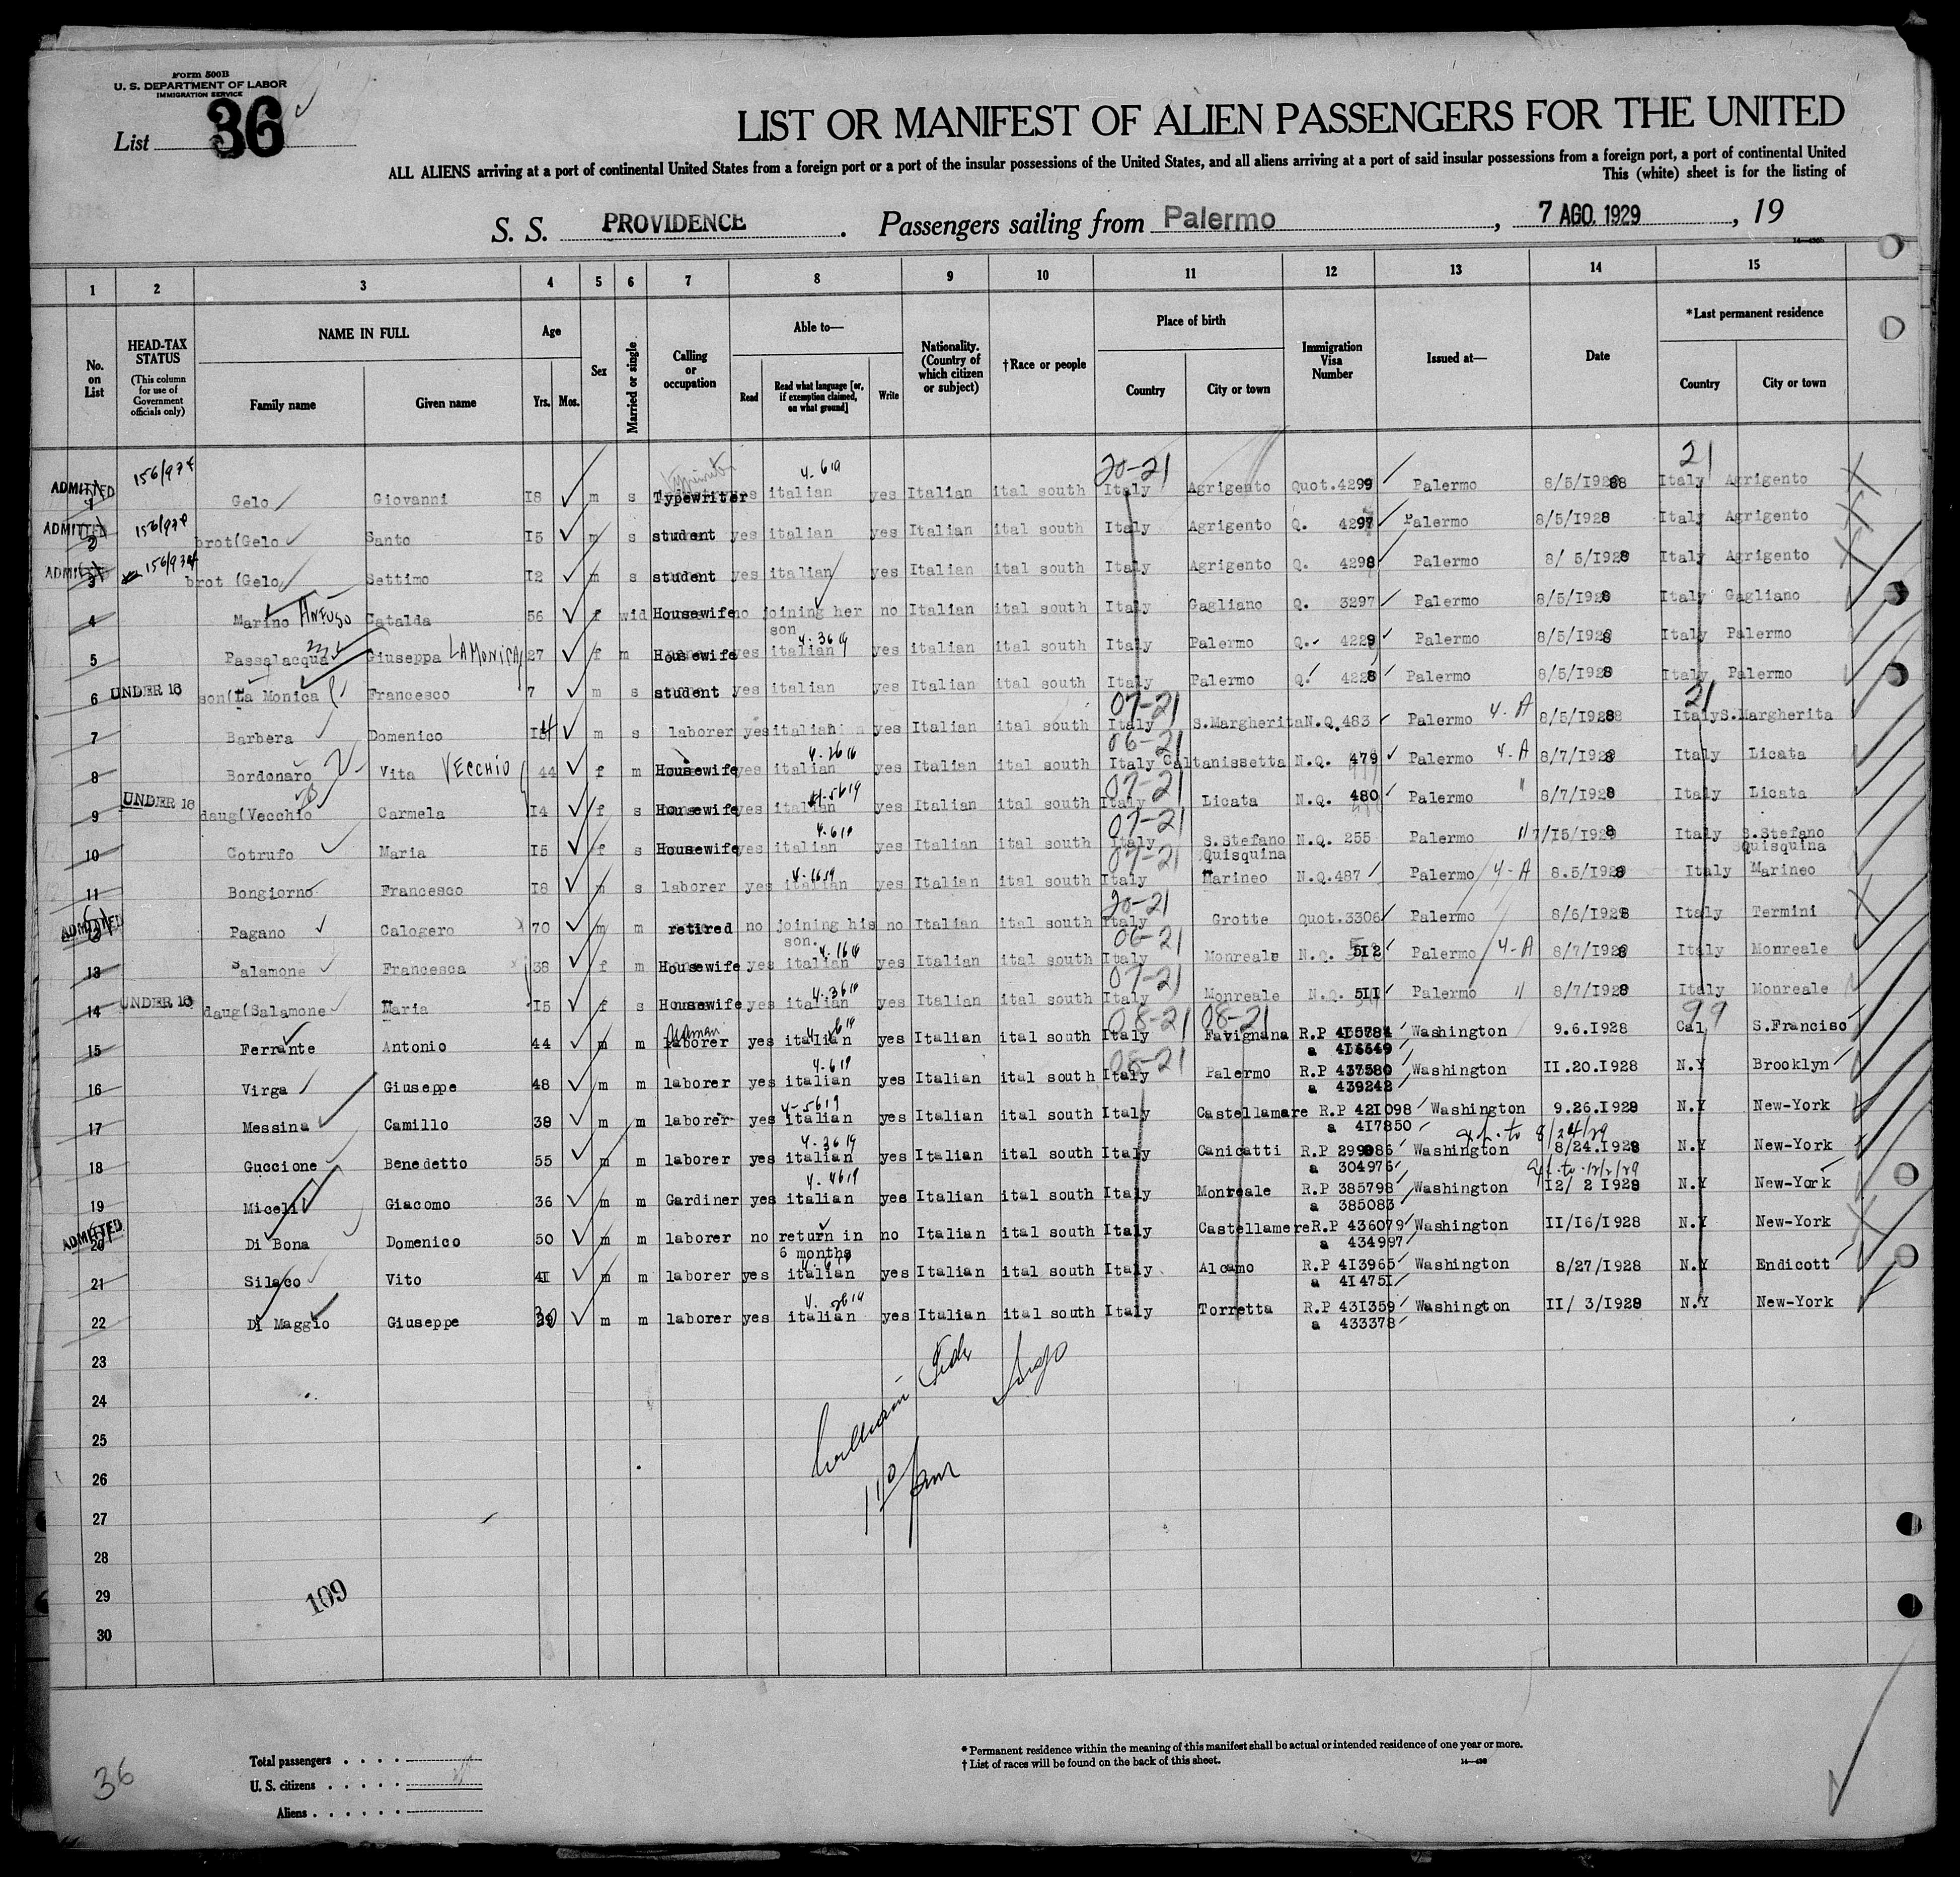 Form 500B
U. S. DEPARTMENT OF LABOR
IMMIGRATION SERVICE
List 36
LIST OR MANIFEST OF ALIEN PASSENGERS FOR THE UNITED
ALL ALIENS arriving at a port of continental United States from a foreign port or a port of the insular possessions of the United States, and all aliens arriving at a port of said insular possessions from a foreign port, a port of continental United
This (white) sheet is for the listing of
S. S. PROVIDENCE. Passengers sailing from Palermo, 7 AGO. 1929, 19
1 2 3 4 5 6 7 8 9 10 11 12 13 14 15
No. on List
HEAD-TAX STATUS
(This column for use of Government officials only)
NAME IN FULL
Family name Given name
Age
Yrs. Mos.
Sex
Married or single
Calling or occupation
Able to—
Read
Read what language [or, if exemption claimed, on what ground]
Write
Nationality. (Country of which citizen or subject)
†Race or people
Place of birth
Country City or town
Immigration Visa Number
Issued at—
Date
*Last permanent residence
Country City or town
20-21 21
ADMITTED 1 Gelo Giovanni 18 m s Typewriter yes italian yes Italian ital south Italy Agrigento Quot.4299 Palermo 8/5/1928 Italy Agrigento
ADMITTED 2 brot(Gelo Santo 15 m s student yes italian yes Italian ital south Italy Agrigento Q. 4297 Palermo 8/5/1928 Italy Agrigento
ADMITTED 3 brot (Gelo Settimo 12 m s student yes italian yes Italian ital south Italy Agrigento Q. 4298 Palermo 8/ 5/1928 Italy Agrigento
4 Marino ANFUSO Catalda 56 f wid Housewife no joining her son no Italian ital south Italy Gagliano Q. 3297 Palermo 8/5/1928 Italy Gagliano
5 Passalacqua Giuseppa LA MONICA 27 f m Housewife yes italian yes Italian ital south Italy Palermo Q. 4229 Palermo 8/5/1928 Italy Palermo
6 UNDER 16 son(La Monica Francesco 7 m s student yes italian yes Italian ital south Italy Palermo Q. 4228 Palermo 8/5/1928 Italy Palermo
07-21 21
7 Barbera Domenico m s laborer yes italian yes Italian ital south Italy S.Margherita N.Q.483 Palermo 4-A 8/5/1928 Italy S.Margherita
06-21
8 Bordonaro Vita VECCHIO 44 f m Housewife yes italian yes Italian ital south Italy Caltanissetta N.Q. 479 Palermo 4-A 8/7/1928 Italy Licata
07-21
9 UNDER 16 daug(Vecchio Carmela 14 f s Housewife yes italian yes Italian ital south Italy Licata N.Q. 480 Palermo " 8/7/1928 Italy Licata
07-21
10 Cotrufo Maria 15 f s Housewife yes italian yes Italian ital south Italy S.Stefano Quisquina N.Q. 255 Palermo " 7/15/1928 Italy S.Stefano Quisquina
07-21
11 Bongiorno Francesco 18 m s laborer yes italian yes Italian ital south Italy Marineo N.Q.487 Palermo 4-A 8.5/1928 Italy Marineo
20-21
ADMITTED 12 Pagano Calogero 70 m m retired no joining his son. no Italian ital south Italy Grotte Quot.3306 Palermo 8/6/1928 Italy Termini
06-21
13 Salamone Francesca 38 f m Housewife yes italian yes Italian ital south Italy Monreale N.Q. 512 Palermo 4-A 8/7/1928 Italy Monreale
07-21
14 UNDER 16 daug(Salamone Maria 15 f s Housewife yes italian yes Italian ital south Italy Monreale N.Q. 511 Palermo " 8/7/1928 Italy Monreale
08-21 08-21 99
15 Ferrante Antonio 44 m m laborer yes italian yes Italian ital south Italy Favignana R.P Washington 9.6.1928 Cal. S.Francisc
08-21
16 Virga Giuseppe 48 m m laborer yes italian yes Italian ital south Italy Palermo R.P 437580 a 439242 Washington 11.20.1928 N.Y Brooklyn
17 Messina Camillo 38 m m laborer yes italian yes Italian ital south Italy Castellamare R.P 421098 a 417850 Washington 9.26.1928 N.Y New-York
to 8/24/29
18 Guccione Benedetto 55 m m laborer yes italian yes Italian ital south Italy Canicatti R.P 299986 a 304976 Washington 8/24.1928 N.Y New-York
to 12/2/29
19 Miceli Giacomo 36 m m Gardiner yes italian yes Italian ital south Italy Monreale R.P 385798 a 385083 Washington 12/ 2 1928 N.Y New-York
ADMITTED 20 Di Bona Domenico 50 m m laborer no return in 6 months no Italian ital south Italy Castellamere R.P 436079 a 434997 Washington 11/16/1928 N.Y New-York
21 Silaco Vito 41 m m laborer yes italian yes Italian ital south Italy Alcamo R.P 413965 a 414751 Washington 8/27/1928 N.Y Endicott
22 Di Maggio Giuseppe m m laborer yes italian yes Italian ital south Italy Torretta R.P 431359 a 433378 Washington 11/ 3/1928 N.Y New-York
23
24
25
26
27
28
29
30
109
36
Total passengers
U. S. citizens
Aliens
* Permanent residence within the meaning of this manifest shall be actual or intended residence of one year or more.
† List of races will be found on the back of this sheet.